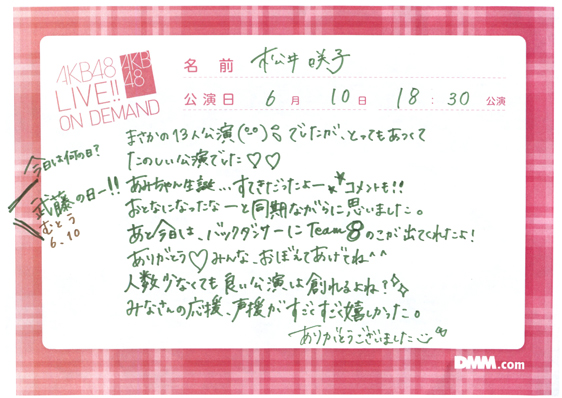 AKB48
LIVE!!
ON DEMAND
AKB
48
名前 松井咲子
公演日 6月 10日 18:30 公演
まさかの13人公演(°°)でしたが、とってもあつくて
たのしい公演でした♡♡
あみちゃん生誕…すてきだったよー コメントも!!
おとなになったなーと同期ながらに思いました。
あと今日は、バックダンサーにTeam8のこが出てくれたよ!
ありがとう♡みんな、おぼえてあげてね^^
人数少なくても良い公演は創れるよね?
みなさんの応援、声援がすごくすごく嬉しかった。
ありがとうございました
今日は何の日?
武藤の日ー!!
むとう
6.10
DMM.com